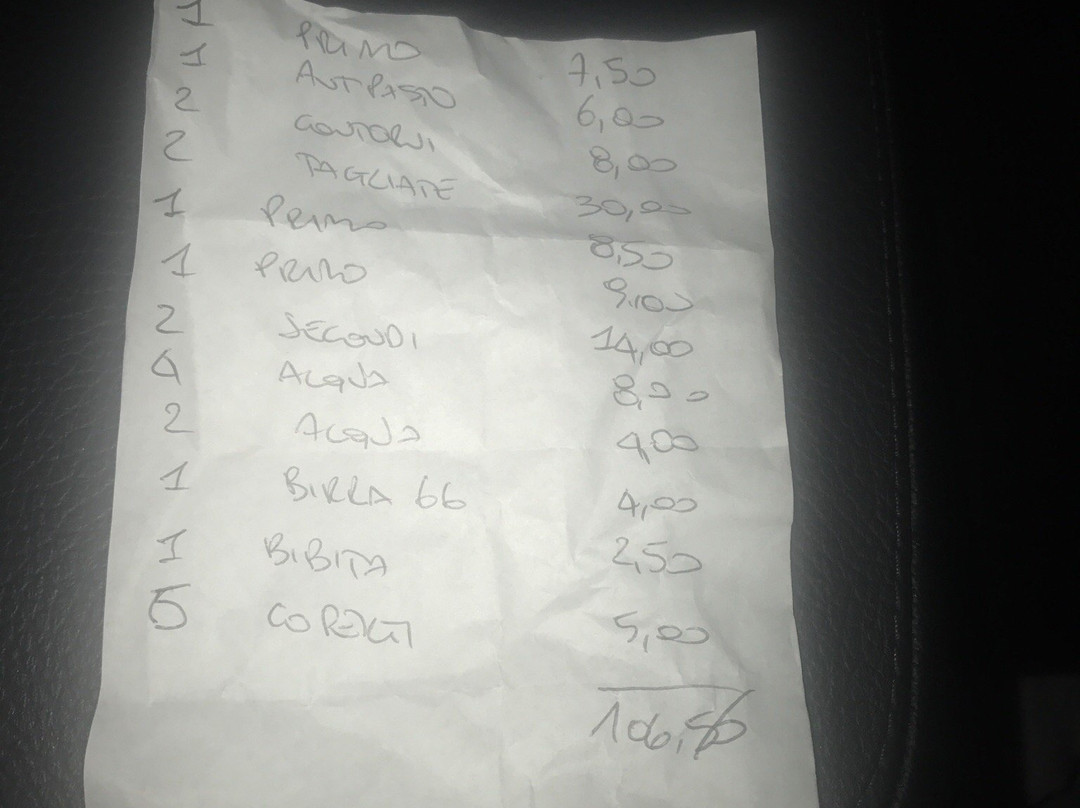 1 PRIMO 7,50
1 ANTIPASTO 6,00
2 CONTORNI 8,00
2 TAGLIATE 30,00
1 PRIMO 8,50
1 PRIMO 9,00
2 SECONDI 14,00
4 ACQUA 8,00
2 ACQUA 4,00
1 BIRRA 66 4,00
1 BIBITA 2,50
5 COPERTI 5,00
106,50